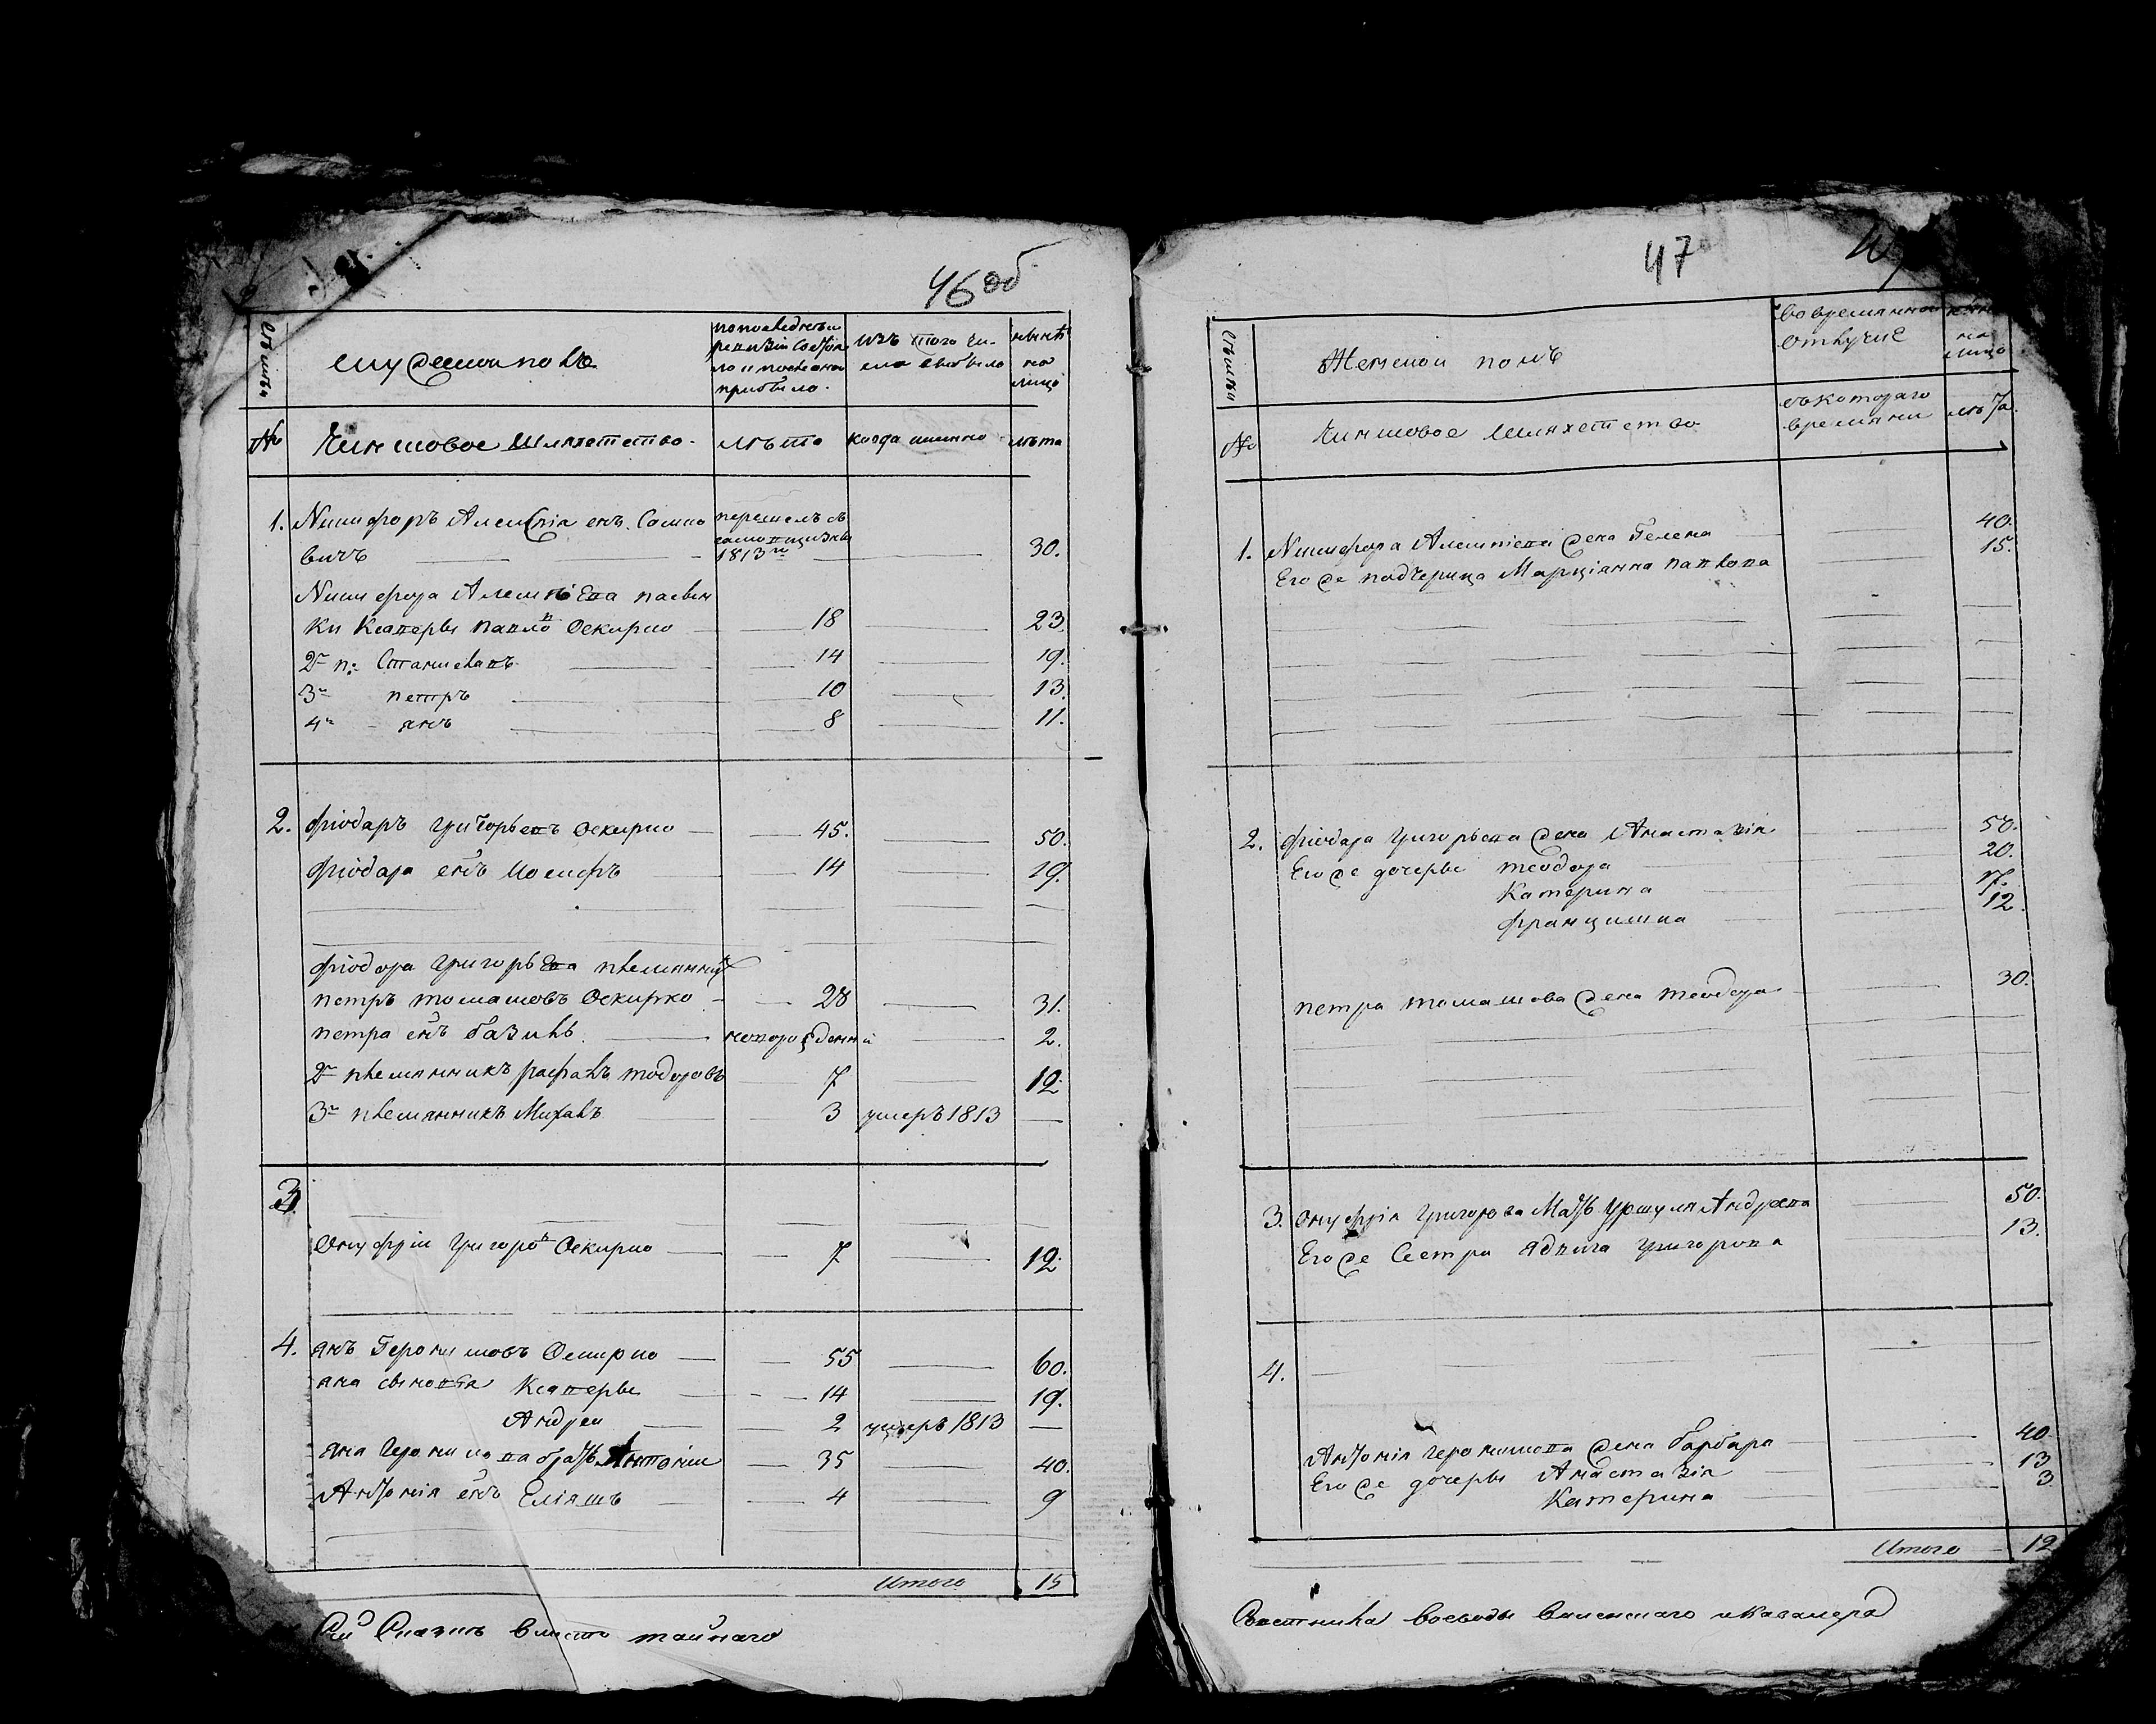 46 об
Семьи
мужескои полъ
по последнеи
ревизіи состоя
ло и после оной
прибыло.
изъ того чи-
сла выбыло
нынѣ
на
лицо
№
Чиншовое шляхетство.
лѣта
когда именно
лѣта
1. Никифоръ Алексѣя снъ
вичъ
перешелъ съ
1813го
30.
Никифора пасын
ки Ксаверы Павлов Оскирко 18 23.
2й п: Станиславъ 14 19.
3й петръ 10 13.
4й янъ 8 11.
2. фіодаръ Григорьевъ Оскирко 45. 50.
фіодара снъ Иосифъ 14 19.
фіодора Григорьева племянник
петръ томашовъ Оскирко 28 31.
петра снъ базиль новорожденный 2.
2й племянникъ рафалъ тодоровъ 7 12.
3й племянникъ Михалъ 3 умеръ 1813
3
Онуфріи Григоров Оскирко 7 12.
4. янъ Геронимовъ Оскирко 55 60.
яна сыновья Ксаверы 14 19.
Андреи 2 умеръ 1813
яна Геронимова братъ Антоніи 35 40.
Антонія снъ Еліяшъ 4 9
Итого 15
Сию Сказку вместо тайнаго
47
Семьи
Женскои полъ
во временнои
отлучке
нынѣ
на
лицо
№
Чиншовое Шляхетство
съ котораго
времяни
лѣта.
1. Никифора жена Гелена 40.
Его же подчерица Марціянна павлова 15.
2. фіодара Григорьева жена Анастазія 50.
Его же дочеры теодора 20.
Катерина 17.
францишка 12.
петра томашова жена теодора 30.
3. Онуфрія Григорова Мать Уршуля Андреева 50.
Его же Сестра Ядвига Григорова 13.
4.
Антонія Геронимова жена барбара 40.
Его же дочеры Анастазія 13
Катерина 3.
Итого 12
Советника воеводы Виленскаго и кавалера